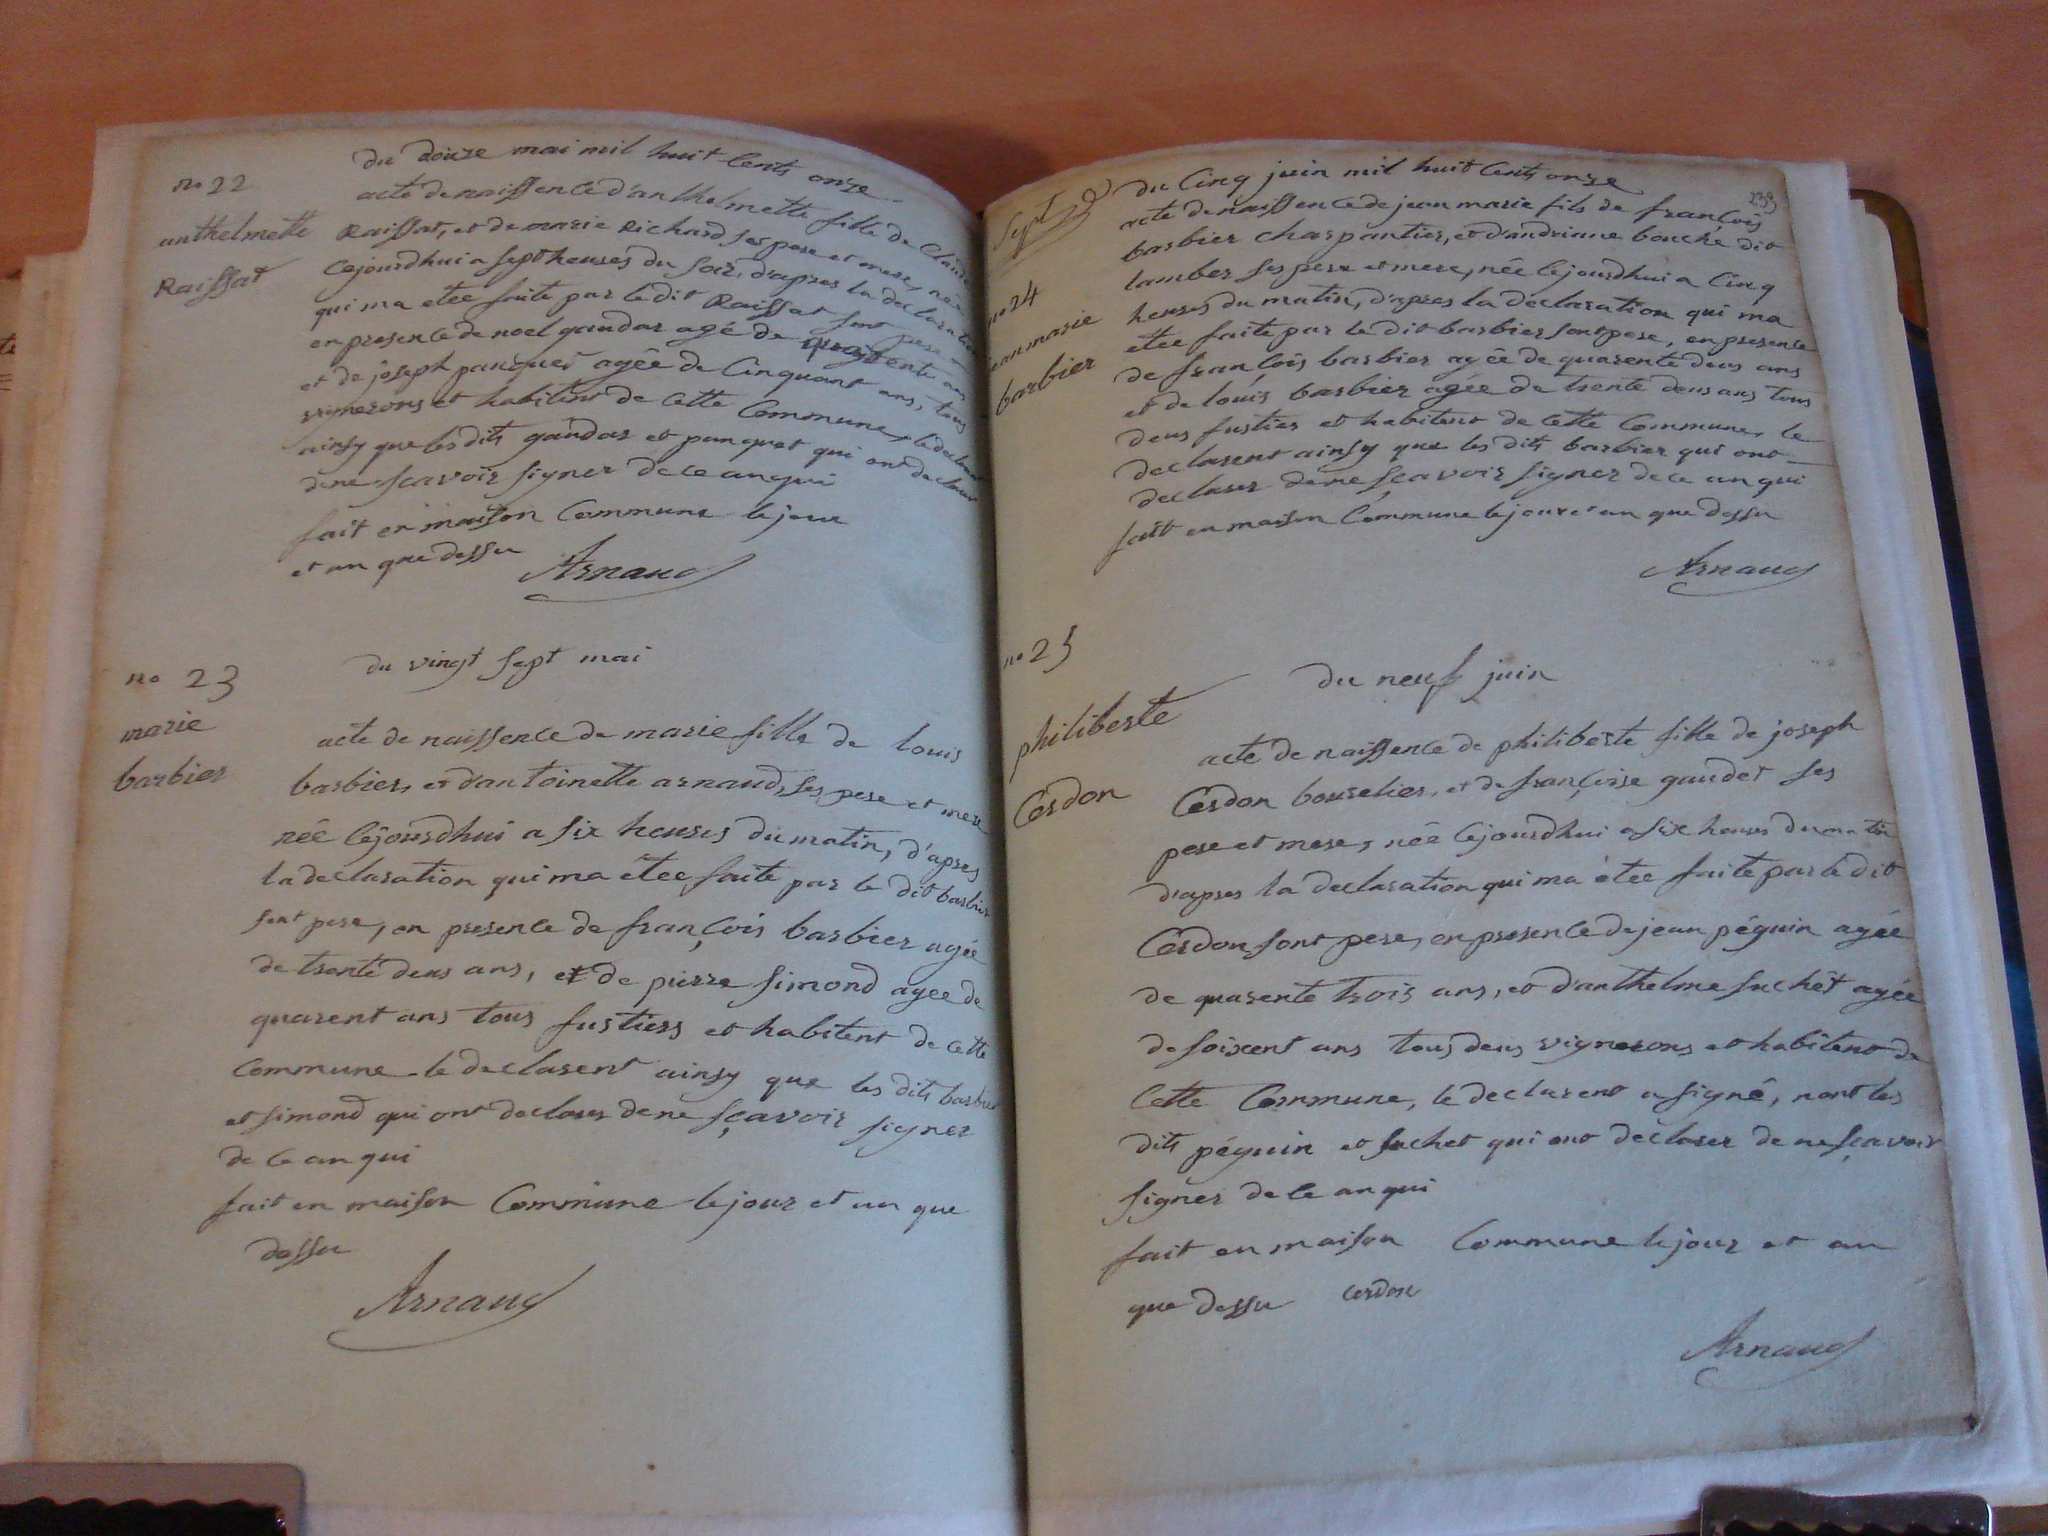 du douze mai mil huit Cents onze
no 22
anthelmette
Raissat
acte de naissence d'anthelmette fille de Claude
Raissat, et de marie Richard ses pere et mere, née
Cejourdhui a sept heures du soir, d'apres la declaration
qui ma etee faite par le dit Raissat sont pere
en presence de noel gandar agé de ans
et de joseph panquet agée de Cinquant ans, tous
vignerons et habitent de Cette Commune, le declarent
ainsy que les dits gandar et panquet qui ont declarer
de ne scavoir signer de ce anqui
fait en maison Commune le jour
et an que dessu
Arnaud
no 23
marie
barbier
du vingt sept mai
acte de naissence de marie fille de louis
barbier, et d'antoinette arnaud, ses pere et mere
née Cejourdhui a six heures du matin, d'apres
la declaration qui ma étee faite par le dit barbier
sont pere, en presence de françois barbier agée
de trente deus ans, et de pierre simond agee de
quarent ans tous fustiers et habitent de cette
Commune le declarent ainsy que les dits barbier
et simond qui ont declarer de ne sçavoir signer
de Ce an qui
fait en maison Commune le jour et an que
dessu
Arnaud
233
Sept
du Cinq juin mil huit Cents onze
no 24
jean marie
barbier
acte de naissence de jean marie fils de françois
barbier charpantier, et d'andrianne bouché dit
lamber ses pere et mere, née Cejourdhui a Cinq
heures du matin, d'apres la declaration qui ma
etee faite par le dit barbier sont pere, en presence
de françois barbier agée de quarente deus ans
et de loúis barbier agée de trente deus ans tous
deus fustier et habitent de Cette Commune, le
declarent ainsy que les dits barbier qui ont
declarer de ne sçavoir signer de Ce an qui
fait en maison Commune le jour et an que dessu
Arnaud
no 25
philiberte
Cerdon
du neuf juin
acte de naissence de philiberte fille de joseph
Cerdon bourelier, et de françoise gaudet ses
pere et mere, née Cejourdhui a six heures du matin
d'apres la declaration qui ma étee faite par le dit
Cerdon sont pere, en presence de jean péguin agée
de quarente trois ans, et d'anthelme suchet agée
de soixent ans tous deus vignerons et habitent de
Cette Commune, le declarent a signé, nont les
dits péguin et suchet qui ont déclarer de ne sçavoir
signer de Ce an qui
fait en maison Commune le jour et an
que dessu cerdon
Arnaud